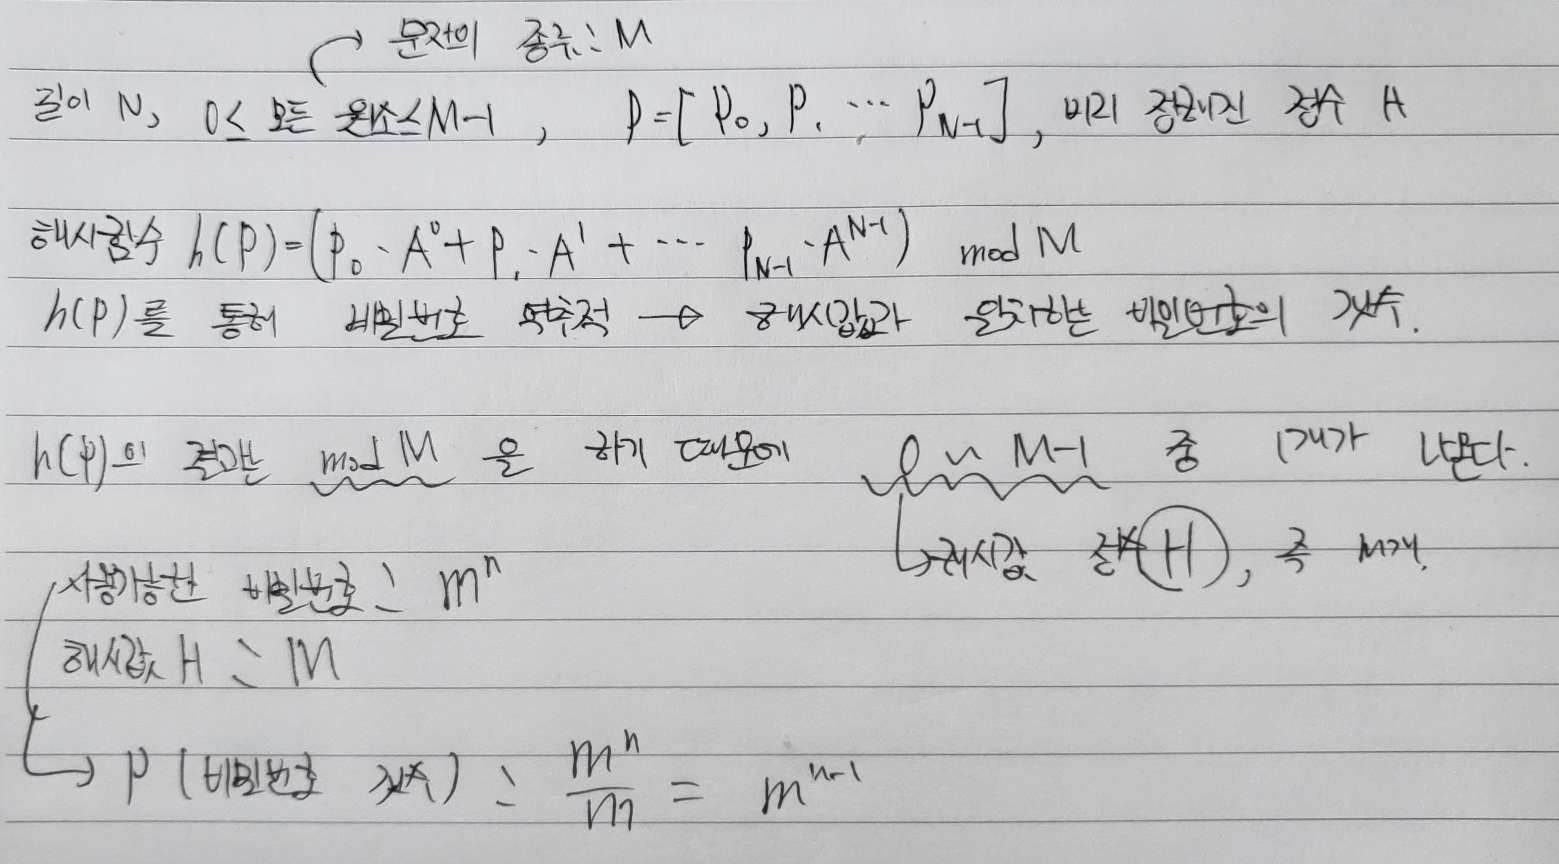 문자의 종류: M
길이 N, 0≤ 모든 원소≤M-1, P=[P₀, P₁ ⋯ P_{N-1}], 미리 정해진 정수 A
해시함수 h(P)=(P₀·A⁰+P₁·A¹+⋯ P_{N-1}·A^{N-1}) mod M
h(P)를 통해 비밀번호 역추적 → 해시값과 일치하는 비밀번호의 갯수.
h(P)의 결과는 mod M 을 하기 때문에 0 ~ M-1 중 1개가 나온다.
↳해시값 H, 즉 M개.
사용가능한 비밀번호: mⁿ
해시값 H : M
→ P (비밀번호 갯수) : mⁿ/m = mⁿ⁻¹